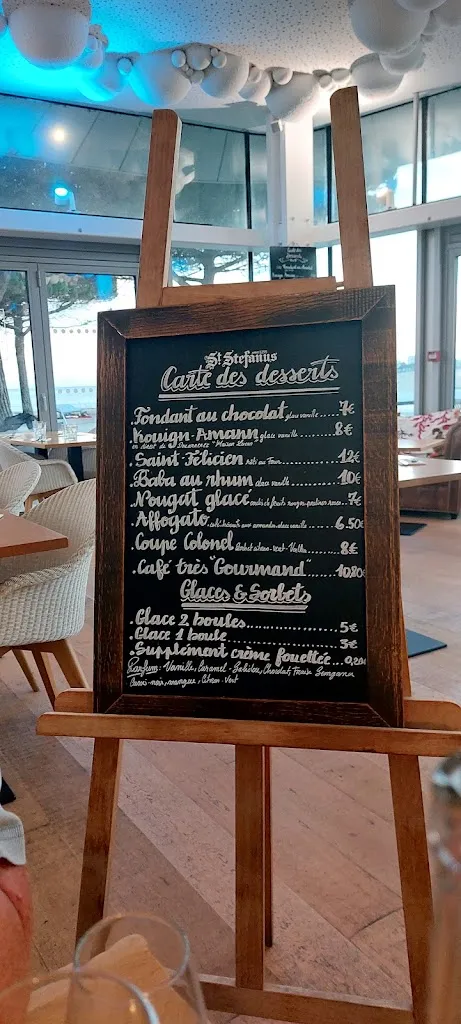 St Stefanus
Carte des desserts
.Fondant au chocolat glace vanille....7€
.Kouign-Amann glace vanille....8€
en direct de Douarnenez "Maison
.Saint Félicien rôti au Four....12€
.Baba au rhum glace vanille....10€
.Nougat glacé coulis de fruits rouges....7€
.Affogato café glace vanille....6.50€
.Coupe Colonel sorbet citron-vert-Vodka....8€
.Café très "Gourmand"....10,80€
Glaces & Sorbets
.Glace 2 boules....5€
.Glace 1 boule....3€
.Supplément crème fouettée...0,20€
Parfums: Vanille, Caramel-Salidou, Chocolat, Fraise Sengana
Coco-noix, mangue, Citron-Vert